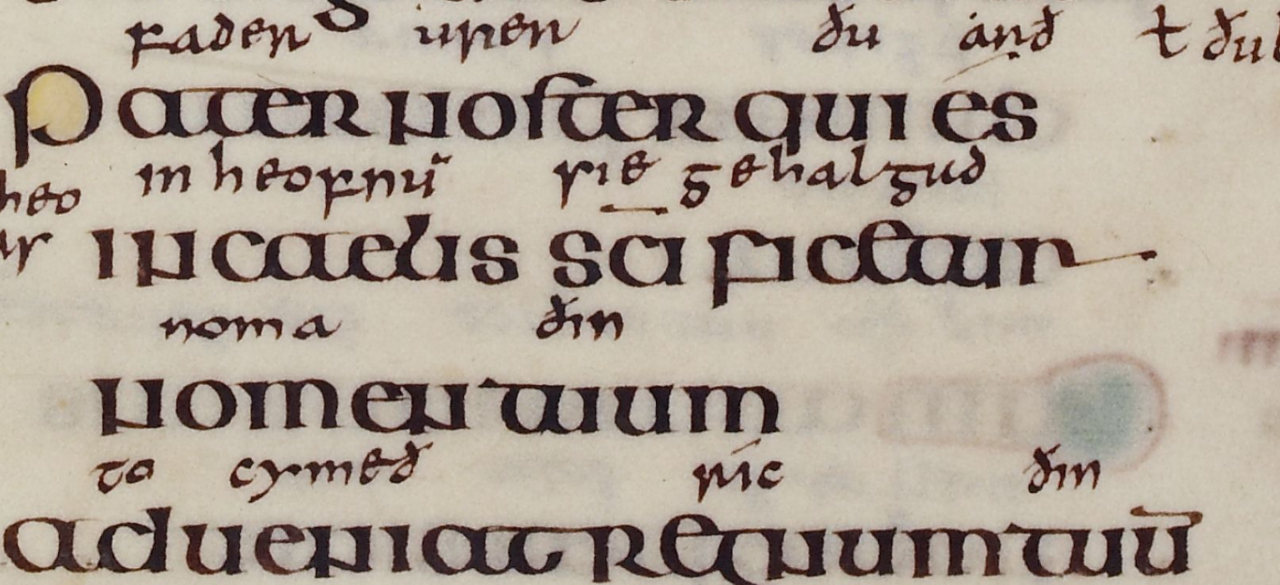 fader uren ðu arð ł ðu
Pater noster qui es
heo in heofnū sie gehalgud
in caelis sc̄ificetur
noma ðin
nomen tuum
to cymeð ric ðin
adueniat regnum tuū